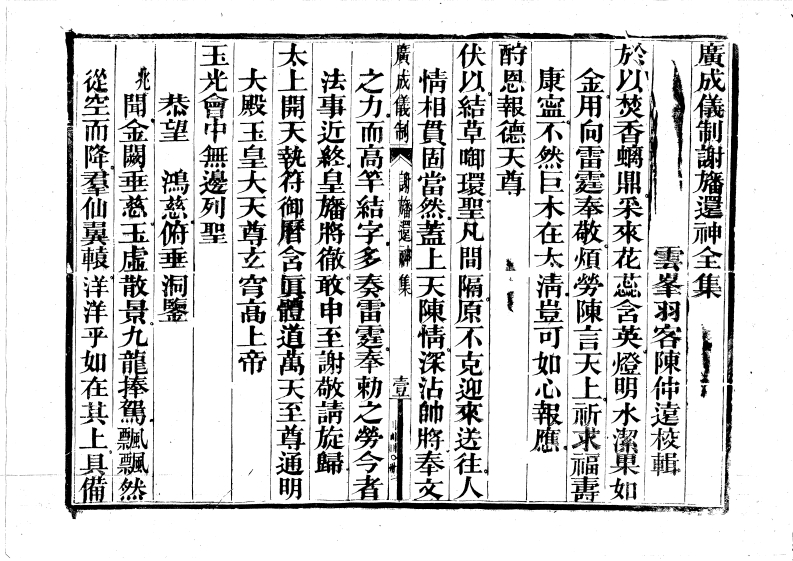 廣成儀制謝旛還神全集
雲峯羽客陳仲遠校輯
於以焚香螭鼎采來花蕊含英燈明水潔果如
金用向雷霆奉敬煩勞陳言天上祈求福壽
康寧不然巨木在太淸豈可如心報應
酧恩報德天尊
伏以結草啣環聖凡問隔原不克迎來送往人
情相貫固當然蓋上天陳情深沾帥將奉文
廣成儀制 謝旛還神集 壹
之力而高竿結字多奏雷霆奉勅之勞今者
法事近終皇旛將徹敢申至謝敬請旋歸
太上開天執符御曆含眞體道萬天至尊通明
大殿玉皇大天尊玄穹高上帝
玉光會中無邊列聖
恭望 鴻慈俯垂洞鑒
兆聞金闕垂慈玉虛散景九龍捧駕飄飄然
從空而降羣仙翼轅洋洋乎如在其上具備